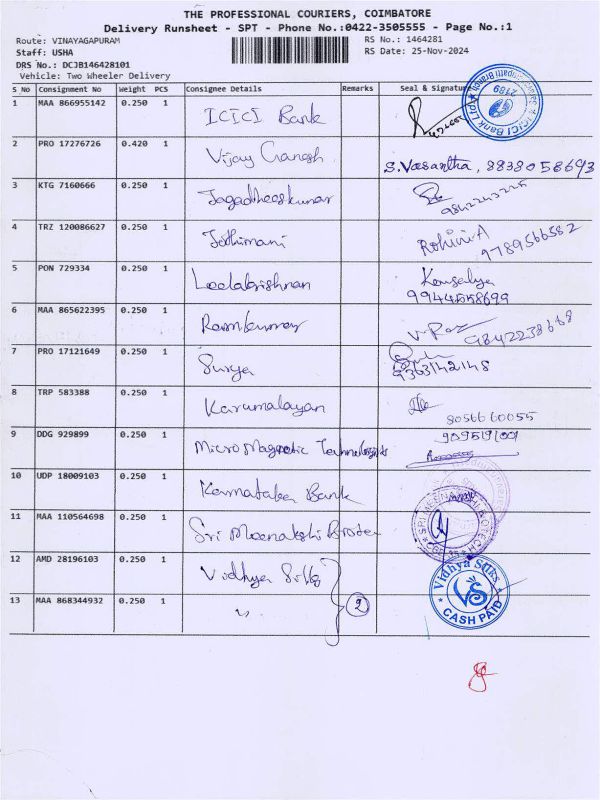 THE PROFESSIONAL COURIERS, COIMBATORE
Delivery Runsheet - SPT - Phone No.:0422-3505555 - Page No.:1
Route: VINAYAGAPURAM RS No.: 1464281
Staff: USHA RS Date: 25-Nov-2024
DRS No.: DCJB146428101
Vehicle: Two Wheeler Delivery
S No Consignment No Weight PCS Consignee Details Remarks Seal & Signature
1 MAA 866955142 0.250 1 ICICI Bank
ICICI Bank Ltd 2189
2 PRO 17276726 0.420 1 Vijay Ganesh S.Vasantha, 8838058693
3 KTG 7160666 0.250 1 Jagadheeskumar
4 TRZ 120086627 0.250 1 Jothimani Rohini A 9789566582
5 PON 729334 0.250 1 Leelakrishnan Kousalya
9944558699
6 MAA 865622395 0.250 1 Ramkumar 9842238668
7 PRO 17121649 0.250 1 Surya 9363142148
8 TRP 583388 0.250 1 Karumalayan
8056660055
9 DDG 929899 0.250 1 Micro Magnetic Technologists
10 UDP 18009103 0.250 1 Karnataka Bank
11 MAA 110564698 0.250 1 Sri Meenakshi Biotech
12 AMD 28196103 0.250 1 Vidhya Silks
Vidhya Silks VS CASH PAID
13 MAA 868344932 0.250 1 " 2